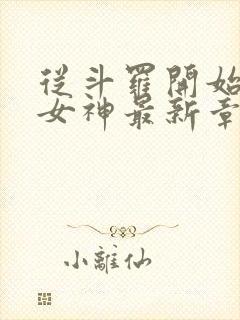 從斗羅開始
女神最新章
小離仙